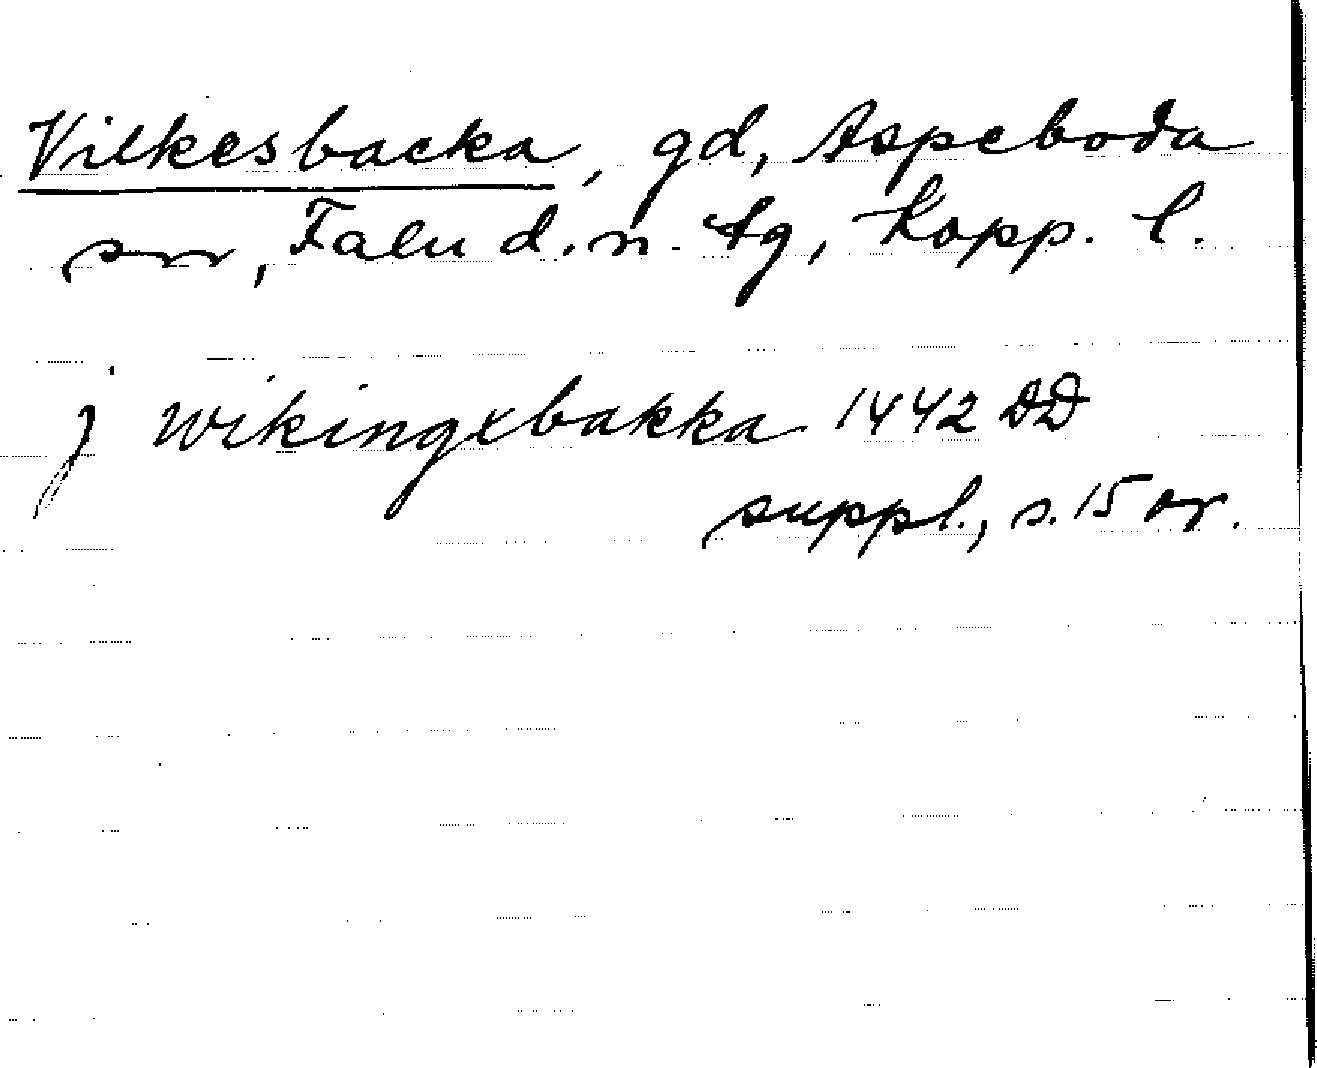 Vilkesbacka, gd, Aspeboda
sn, Falu d. n. tg, Kopp. l.
j Wikingxbakka 1442 DD
suppl., s. 15 or.